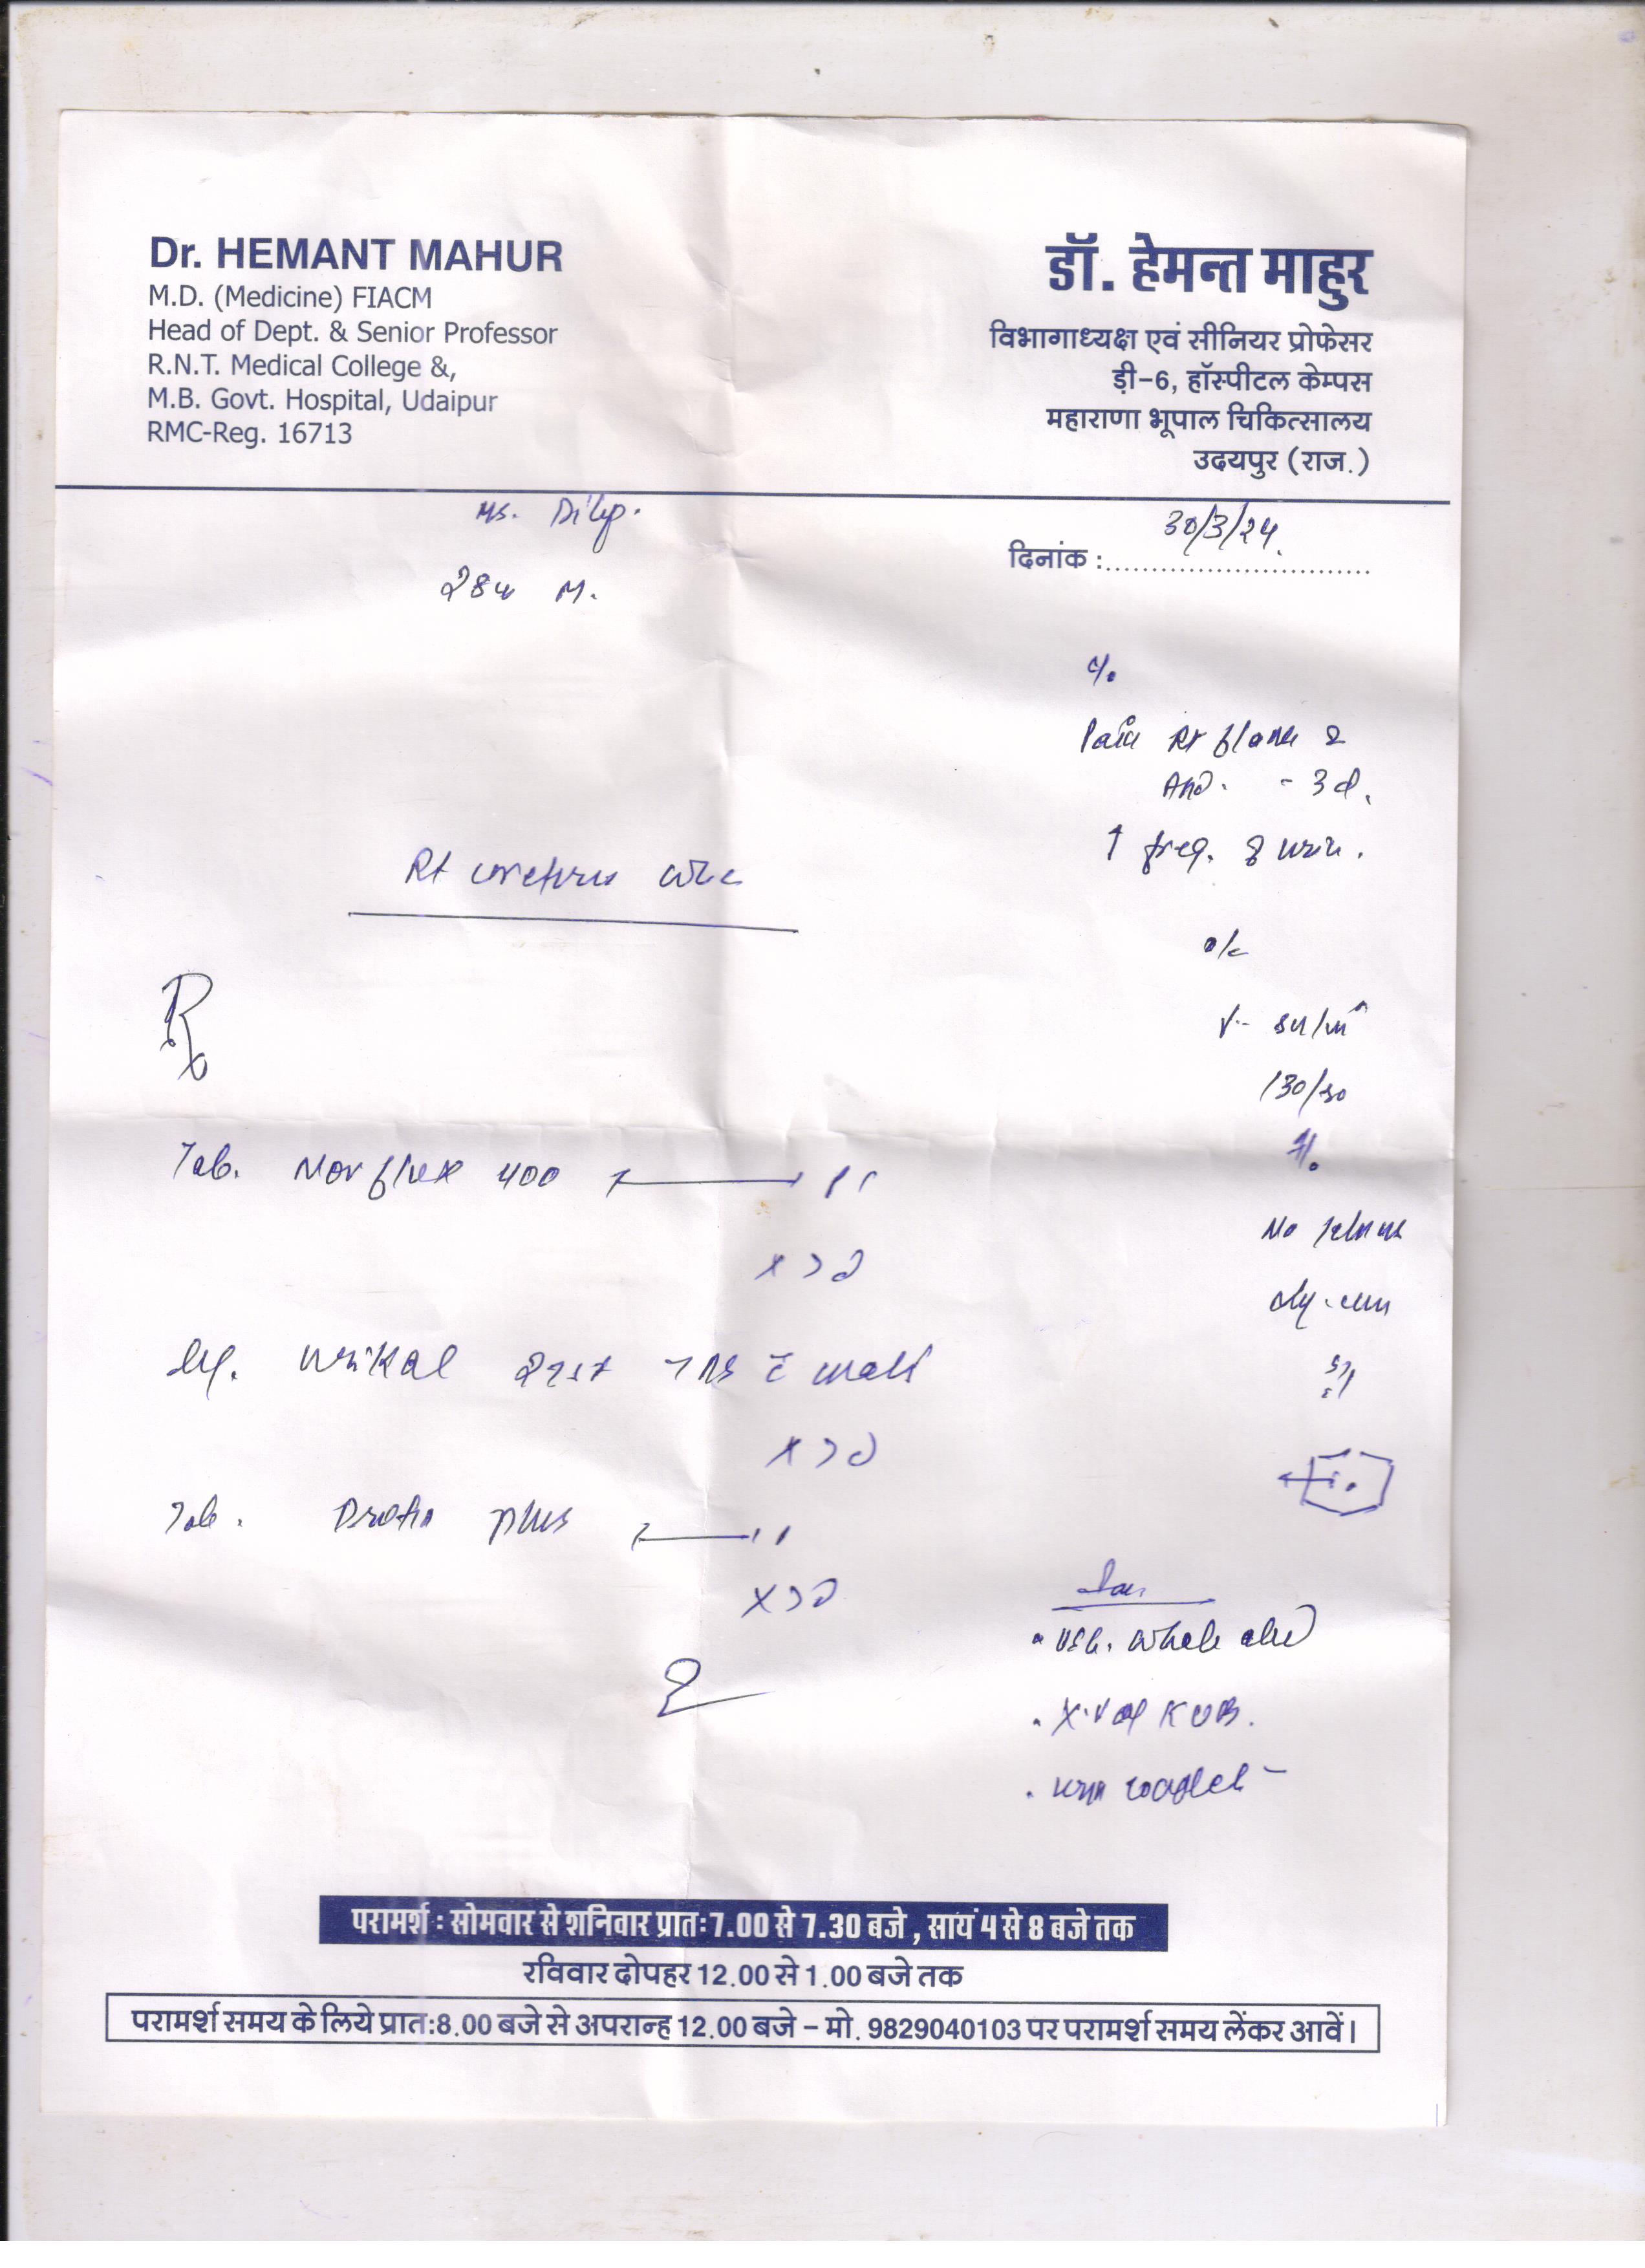 Dr. HEMANT MAHUR
M.D. (Medicine) FIACM
Head of Dept. & Senior Professor
R.N.T. Medical College &,
M.B. Govt. Hospital, Udaipur
RMC-Reg. 16713
डॉ. हेमन्त माहुर
विभागाध्यक्ष एवं सीनियर प्रोफेसर
ड़ी-6, हॉस्पीटल केम्पस
महाराणा भूपाल चिकित्सालय
उदयपुर (राज.)
Dilip.
दिनांक : 30/3/24
28y M.
c/o
Pain Rt flank &
Abd. - 3d.
↑ freq. of urin.
Rt ureteric colic
o/e
130/80
No
Rx
Tab. Norflox 400
x 3d
Urikal TDS
x 3d
Tab. Drotin plus
x 3d
USG. whole abd
X-ray KUB.
Urin
परामर्श : सोमवार से शनिवार प्रातः7.00 से 7.30 बजे , सायं 4 से 8 बजे तक
रविवार दोपहर 12.00 से 1.00 बजे तक
परामर्श समय के लिये प्रात:8.00 बजे से अपरान्ह 12.00 बजे – मो. 9829040103 पर परामर्श समय लेंकर आवें।